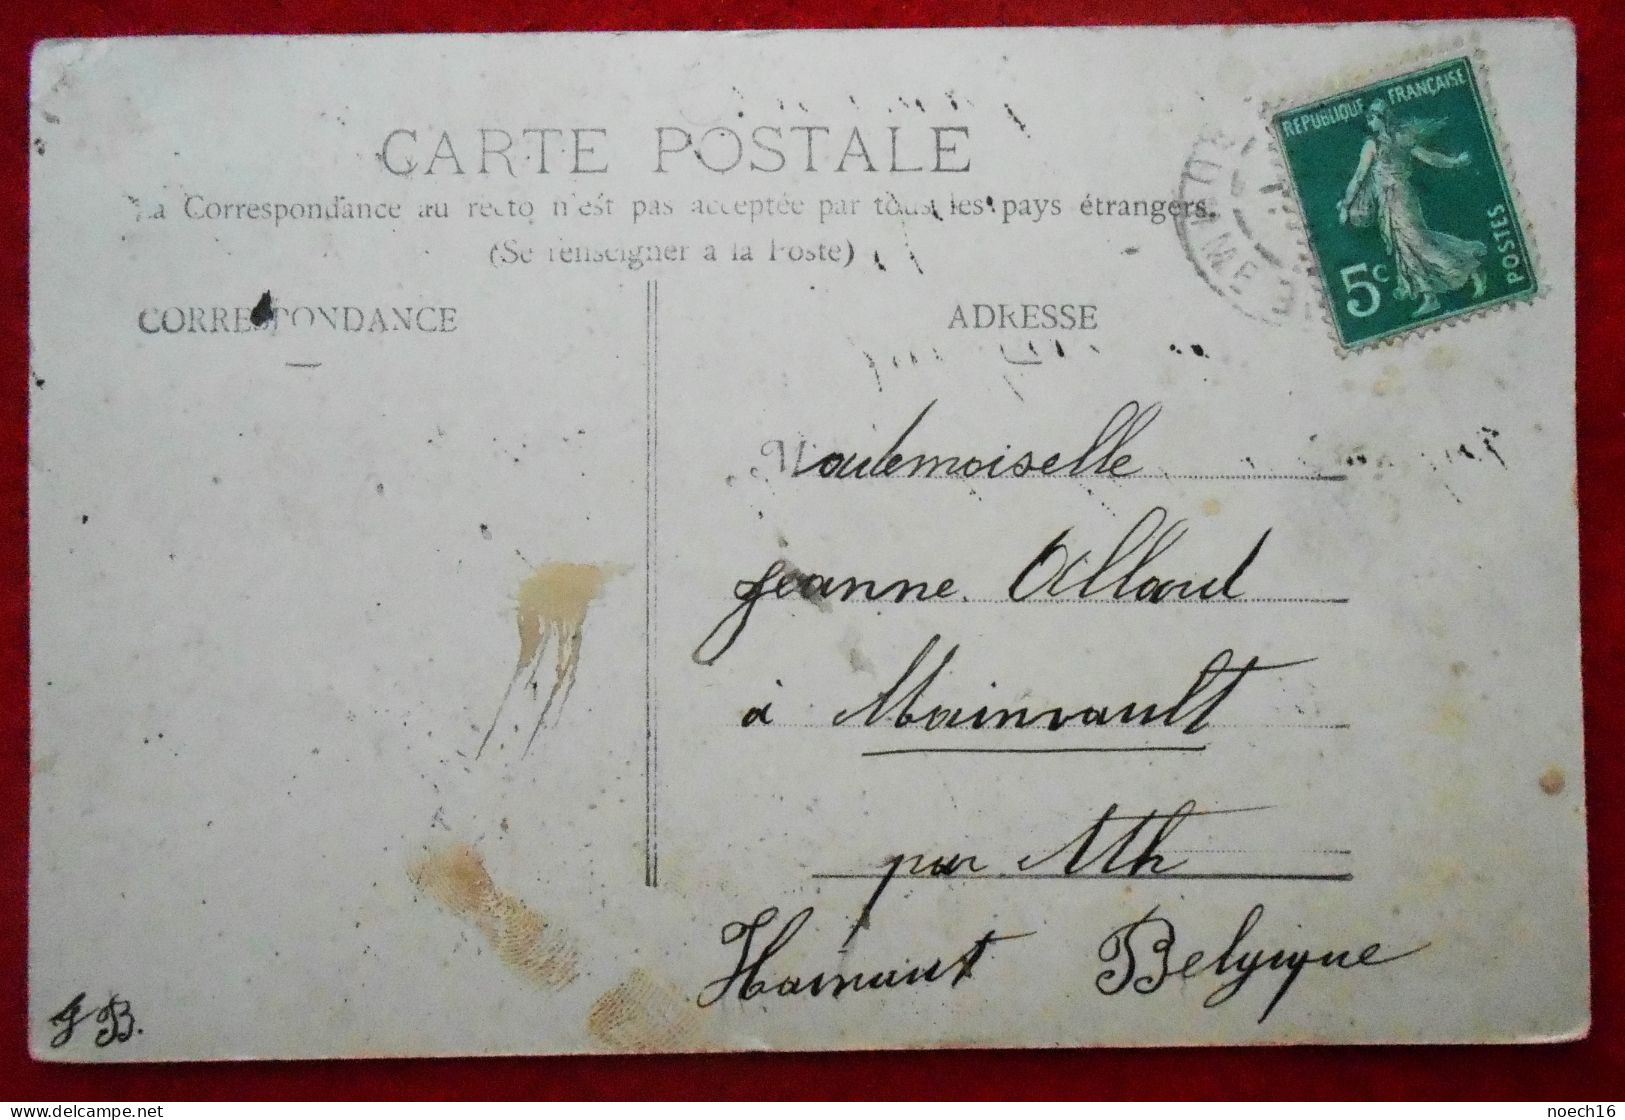 CARTE POSTALE
La Correspondance au recto n'est pas acceptée par tous les pays étrangers.
(Se renseigner à la Poste)
CORRESPONDANCE
ADRESSE
RÉPUBLIQUE FRANÇAISE
POSTES
5c
Mademoiselle
Jeanne Allard
à Mainvault
par Ath
Hainaut Belgique
J B.
delcampe.net
noech16